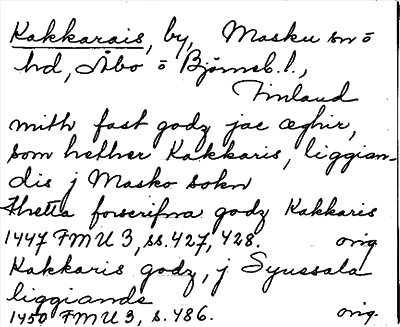 Kakkarais, by, Masku sn o
hd, Åbo o Björneb. l.,
Finland
mith fast godz jac æghir,
som hether Kakkaris, liggian-
dis j Masko sokn
Thetta forscrifna godz Kakkaris
1447 FMU 3, ss. 427, 428. orig
Kakkaris godz, j Syussala
liggiands
1450 FMU 3, s. 486. orig.